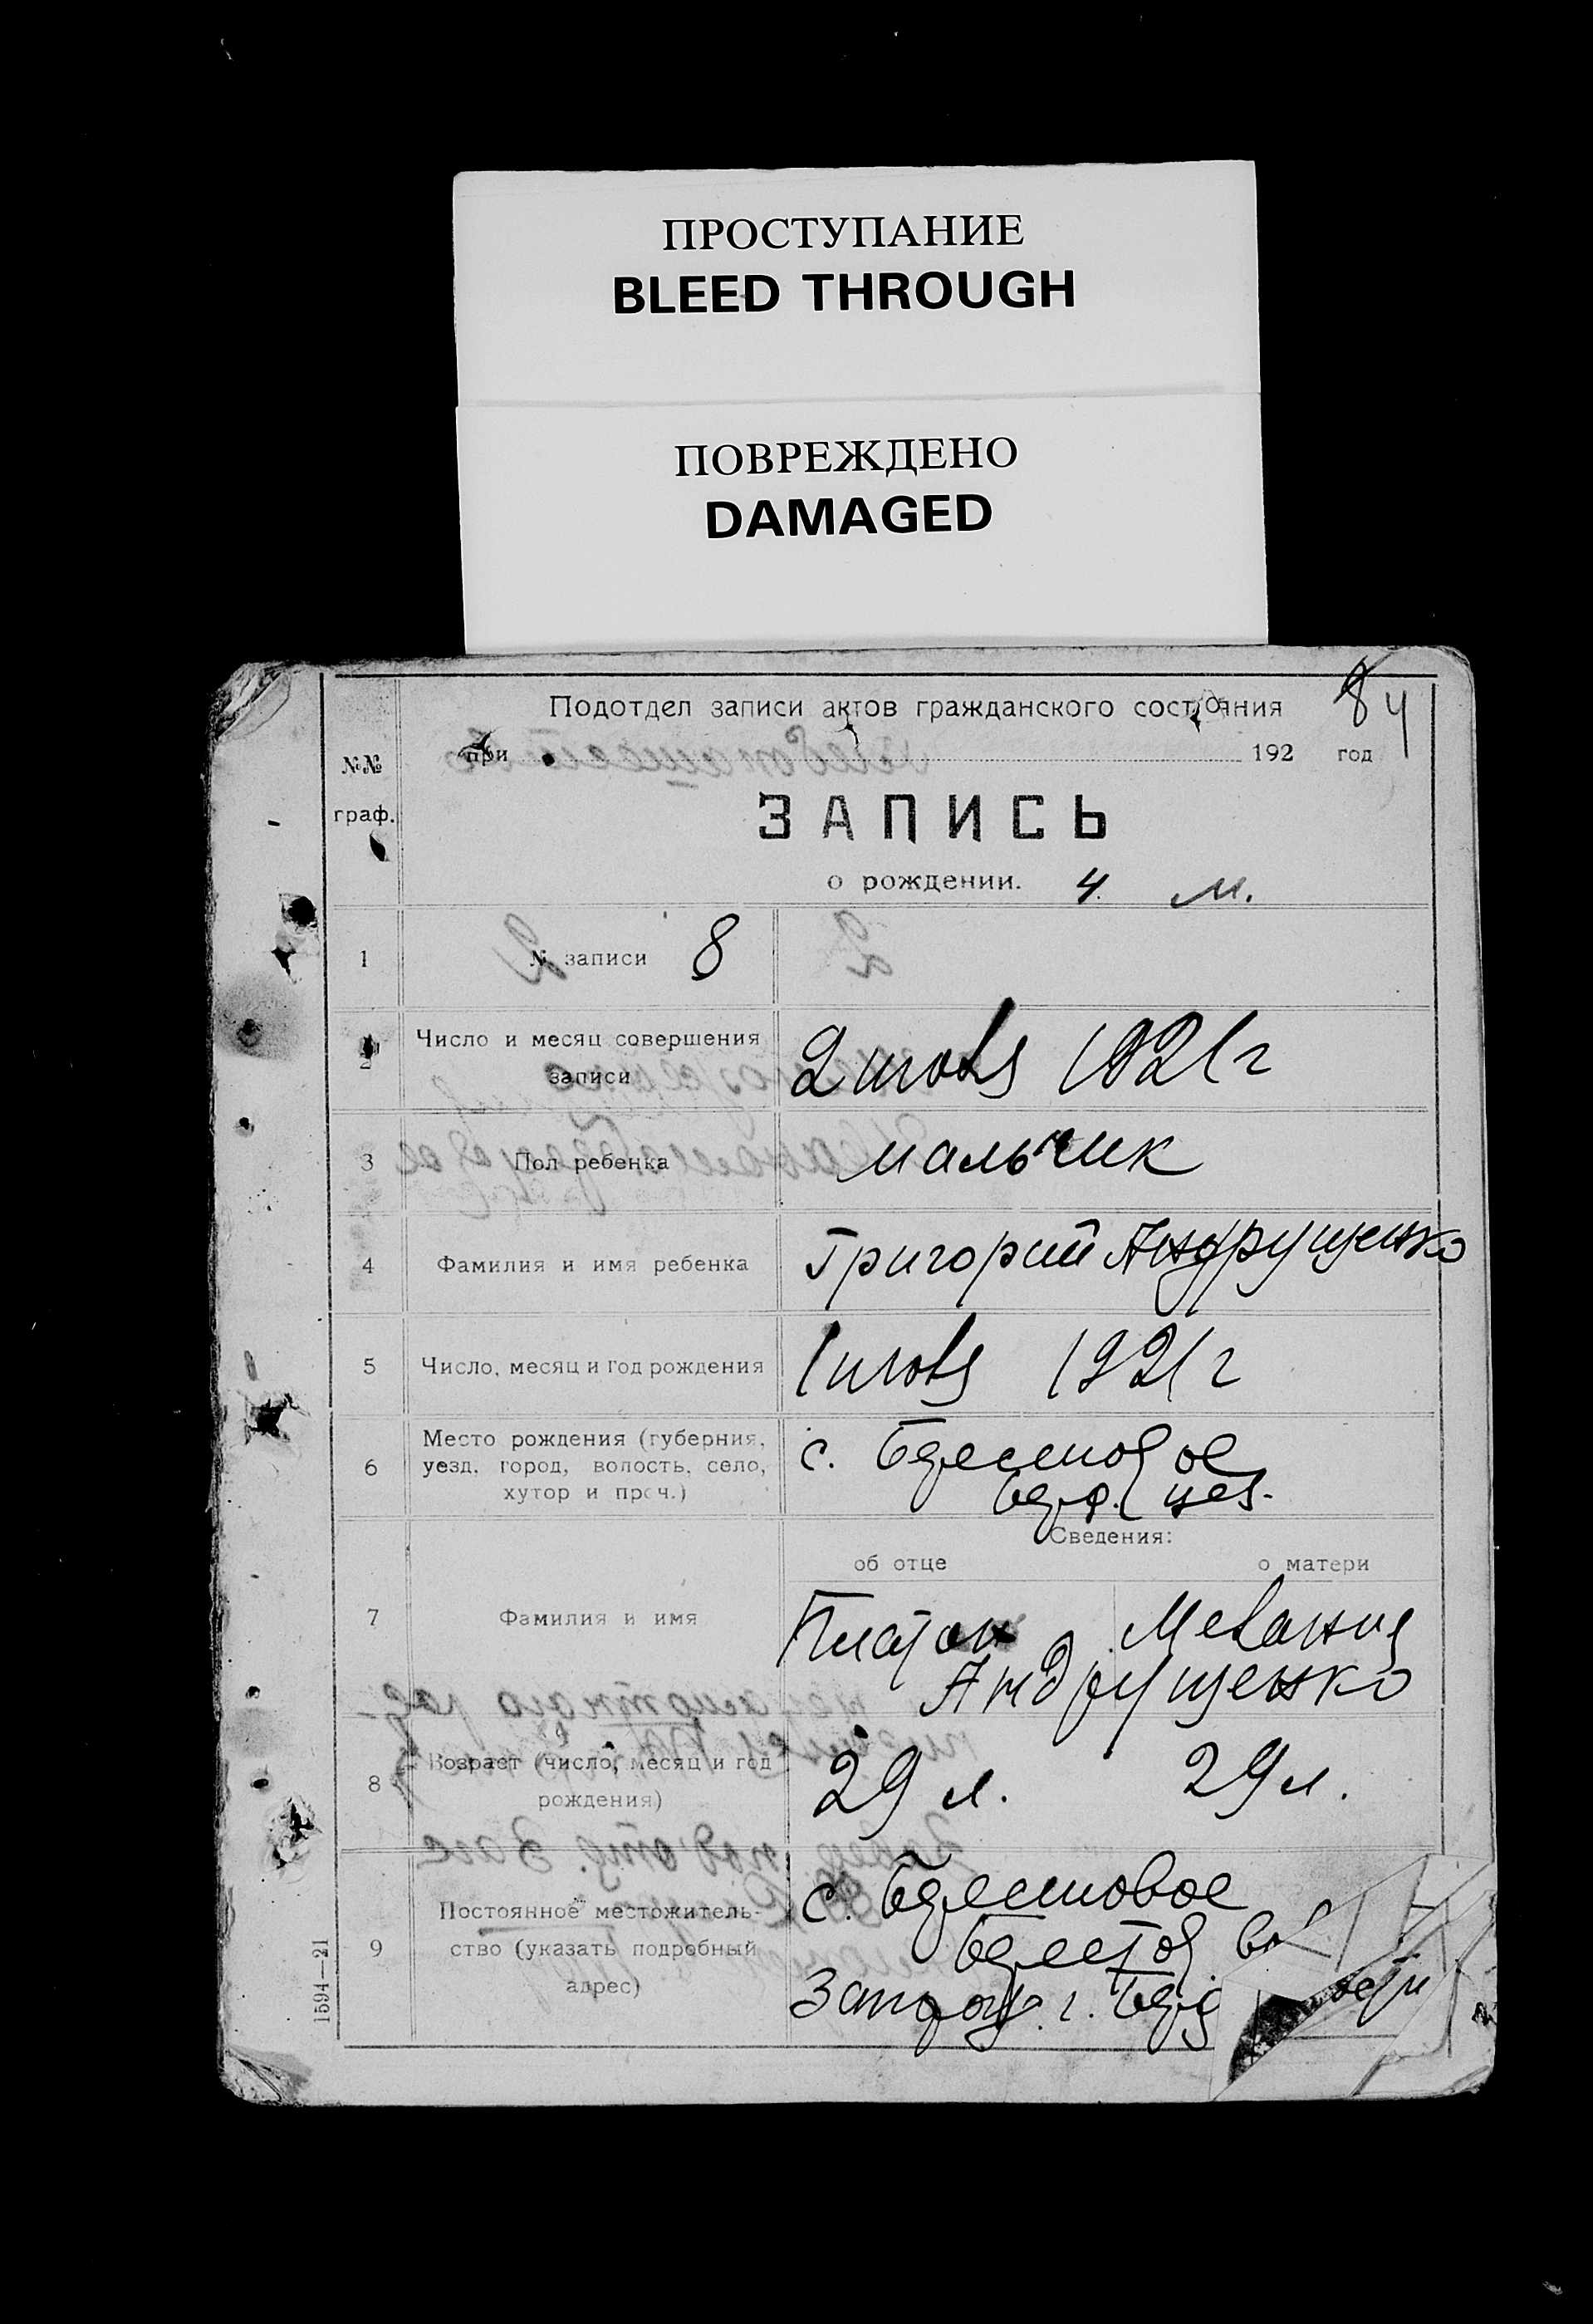 ПРОСТУПАНИЕ
BLEED THROUGH
ПОВРЕЖДЕНО
DAMAGED
84
Подотдел записи актов гражданского состояния
при 192 год
№№
граф.
ЗАПИСЬ
о рождении. 4 м.
1 № записи 8
2 Число и месяц совершения
записи
2 июля 1921 г
3 Пол ребенка мальчик
4 Фамилия и имя ребенка Григорий Андрущенко
5 Число, месяц и год рождения 1 июля 1921 г
6 Место рождения (губерния,
уезд, город, волость, село,
хутор и проч.)
с.
Сведения:
об отце о матери
7 Фамилия и имя
Платон Мелания
Андрущенко
8 Возраст (число, месяц и год
рождения)
29 л. 29 л.
9 Постоянное местожитель-
ство (указать подробный
адрес)
с.
1594—21